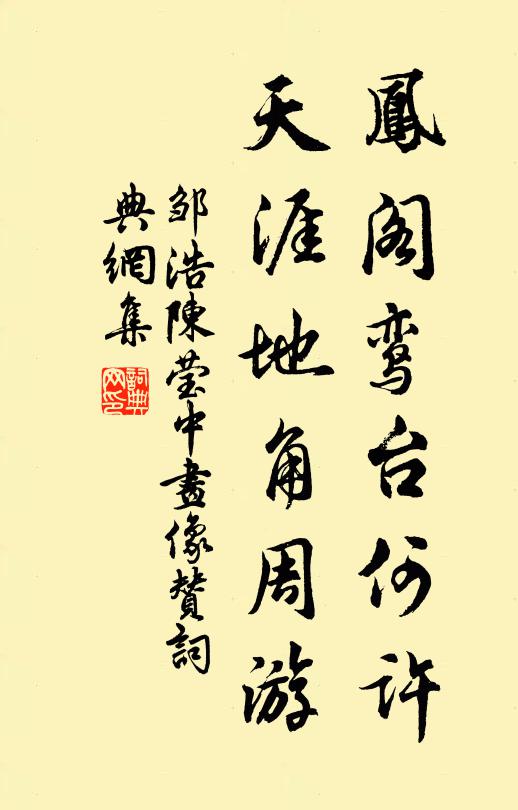 鳳阁鸾台何许
天涯地角周游
邹浩陳莹中畫像赞詞
典網集
詞典網印